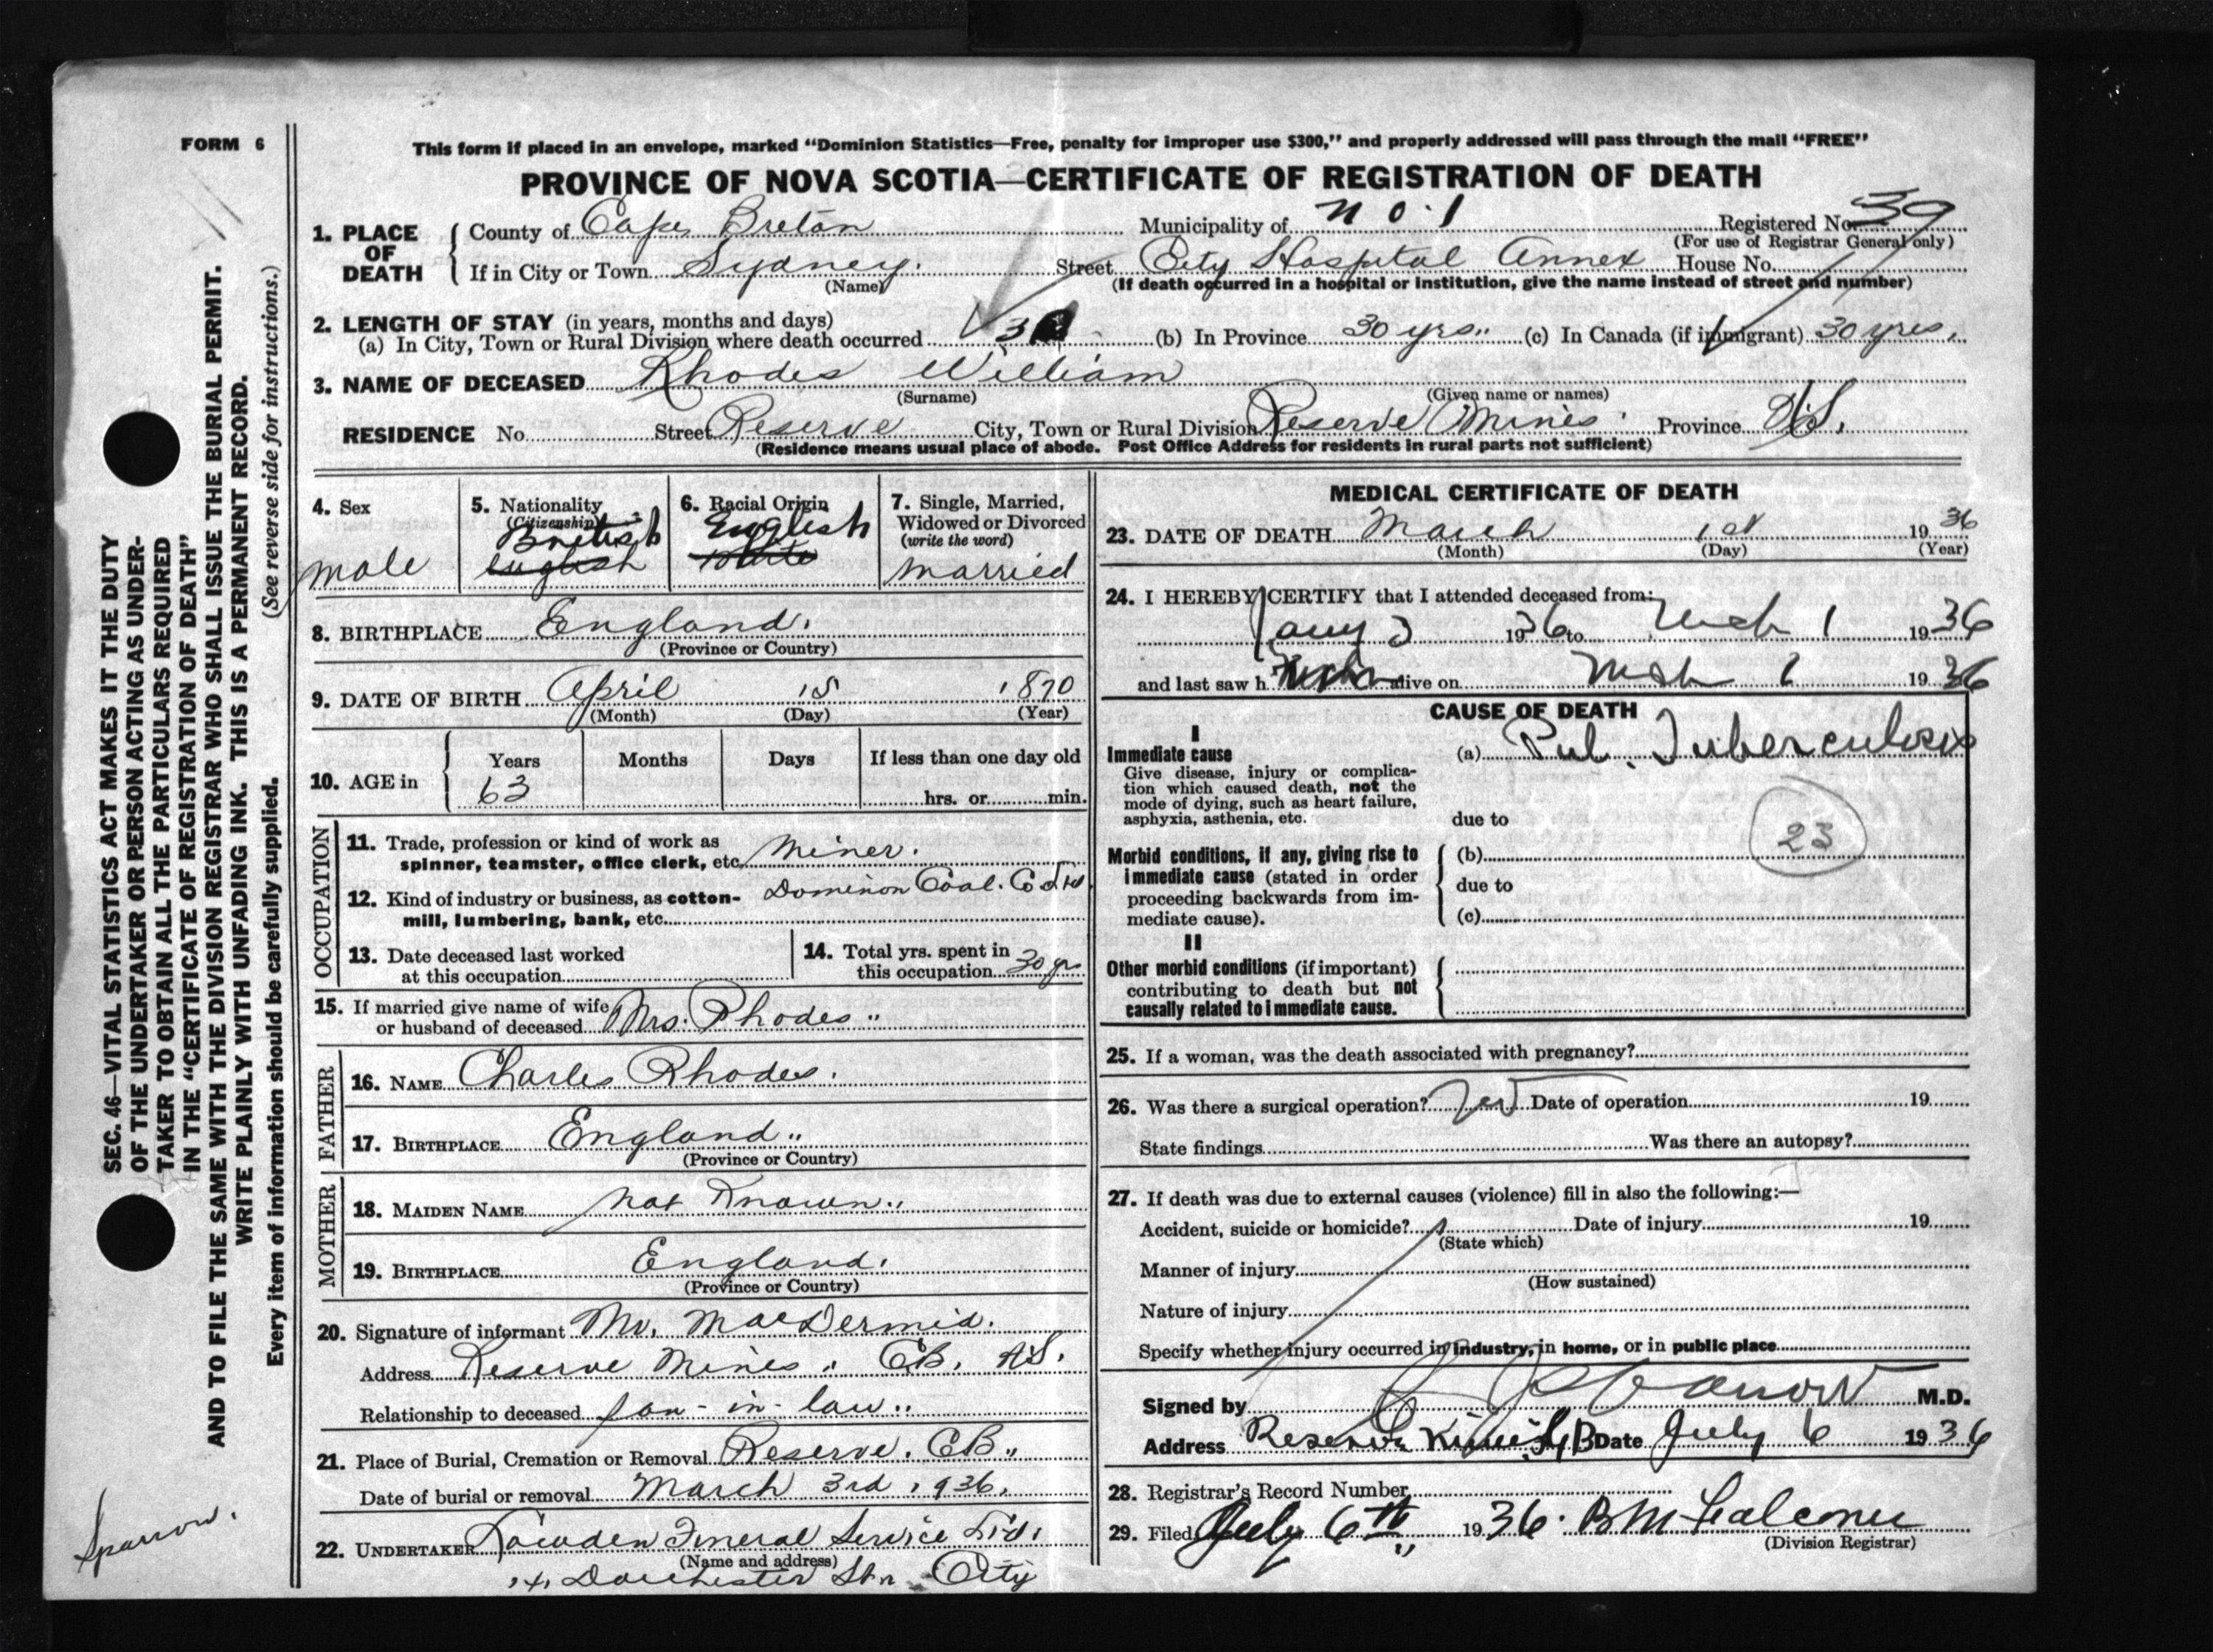 FORM 6
This form if placed in an envelope, marked "Dominion Statistics—Free, penalty for improper use $300," and properly addressed will pass through the mail "FREE"
PROVINCE OF NOVA SCOTIA—CERTIFICATE OF REGISTRATION OF DEATH
1. PLACE OF DEATH
County of Cape Breton Municipality of No. 1 Registered No. 39
(For use of Registrar General only)
If in City or Town Sydney. Street City Hospital Annex House No.
(Name) (If death occurred in a hospital or institution, give the name instead of street and number)
2. LENGTH OF STAY (in years, months and days)
(a) In City, Town or Rural Division where death occurred 3 (b) In Province 30 yrs.. (c) In Canada (if immigrant) 30 yres.
3. NAME OF DECEASED Rhodes William
(Surname) (Given name or names)
RESIDENCE No. Street Reserve City, Town or Rural Division Reserve Mines Province N.S.
(Residence means usual place of abode. Post Office Address for residents in rural parts not sufficient)
4. Sex
male
5. Nationality
(Citizenship)
British
English
6. Racial Origin
English
White
7. Single, Married, Widowed or Divorced
(write the word)
married
8. BIRTHPLACE England.
(Province or Country)
9. DATE OF BIRTH April 15 1870
(Month) (Day) (Year)
10. AGE in Years Months Days If less than one day old
63 hrs. or min.
OCCUPATION
11. Trade, profession or kind of work as
spinner, teamster, office clerk, etc. Miner.
12. Kind of industry or business, as cotton-
mill, lumbering, bank, etc. Dominion Coal. Co Ltd
13. Date deceased last worked
at this occupation
14. Total yrs. spent in
this occupation 30 yrs
15. If married give name of wife
or husband of deceased Mrs. Rhodes "
FATHER
16. NAME Charles Rhodes.
17. BIRTHPLACE England "
(Province or Country)
MOTHER
18. MAIDEN NAME not Known..
19. BIRTHPLACE England.
(Province or Country)
20. Signature of informant Mr. MacDermid.
Address Reserve Mines. C.B. N.S.
Relationship to deceased son-in-law..
21. Place of Burial, Cremation or Removal Reserve. C.B.,
Date of burial or removal March 3rd 1936.
22. UNDERTAKER Lowden Funeral Service Ltd.
(Name and address)
Dorchester St. City
MEDICAL CERTIFICATE OF DEATH
23. DATE OF DEATH March 1st 1936
(Month) (Day) (Year)
24. I HEREBY CERTIFY that I attended deceased from:
Jany 3 1936 to Mch 1 1936
and last saw h alive on Mch 1 1936
CAUSE OF DEATH
I
Immediate cause
Give disease, injury or complica-
tion which caused death, not the
mode of dying, such as heart failure,
asphyxia, asthenia, etc.
(a) Pul. Tuberculosis
due to
23
Morbid conditions, if any, giving rise to
immediate cause (stated in order
proceeding backwards from im-
mediate cause).
(b)
due to
(c)
II
Other morbid conditions (if important)
contributing to death but not
causally related to immediate cause.
25. If a woman, was the death associated with pregnancy?
26. Was there a surgical operation? Date of operation 19
State findings Was there an autopsy?
27. If death was due to external causes (violence) fill in also the following:—
Accident, suicide or homicide? Date of injury 19
(State which)
Manner of injury
(How sustained)
Nature of injury
Specify whether injury occurred in industry, in home, or in public place
Signed by M.D.
Address Reserve Mines C B Date July 6 1936
28. Registrar's Record Number
29. Filed July 6th 1936. B M Falconer
(Division Registrar)
SEC. 46—VITAL STATISTICS ACT MAKES IT THE DUTY
OF THE UNDERTAKER OR PERSON ACTING AS UNDER-
TAKER TO OBTAIN ALL THE PARTICULARS REQUIRED
IN THE "CERTIFICATE OF REGISTRATION OF DEATH"
AND TO FILE THE SAME WITH THE DIVISION REGISTRAR WHO SHALL ISSUE THE BURIAL PERMIT.
WRITE PLAINLY WITH UNFADING INK. THIS IS A PERMANENT RECORD.
Every item of information should be carefully supplied. (See reverse side for instructions.)
Sparrow.